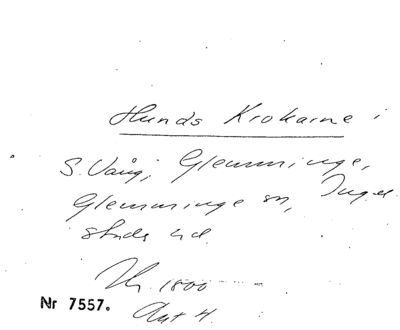 Hunds Krokarne i
S. Vång, Glemminge,
Glemminge sn, Ingel-
stads hd.
1800
Nr 7557.